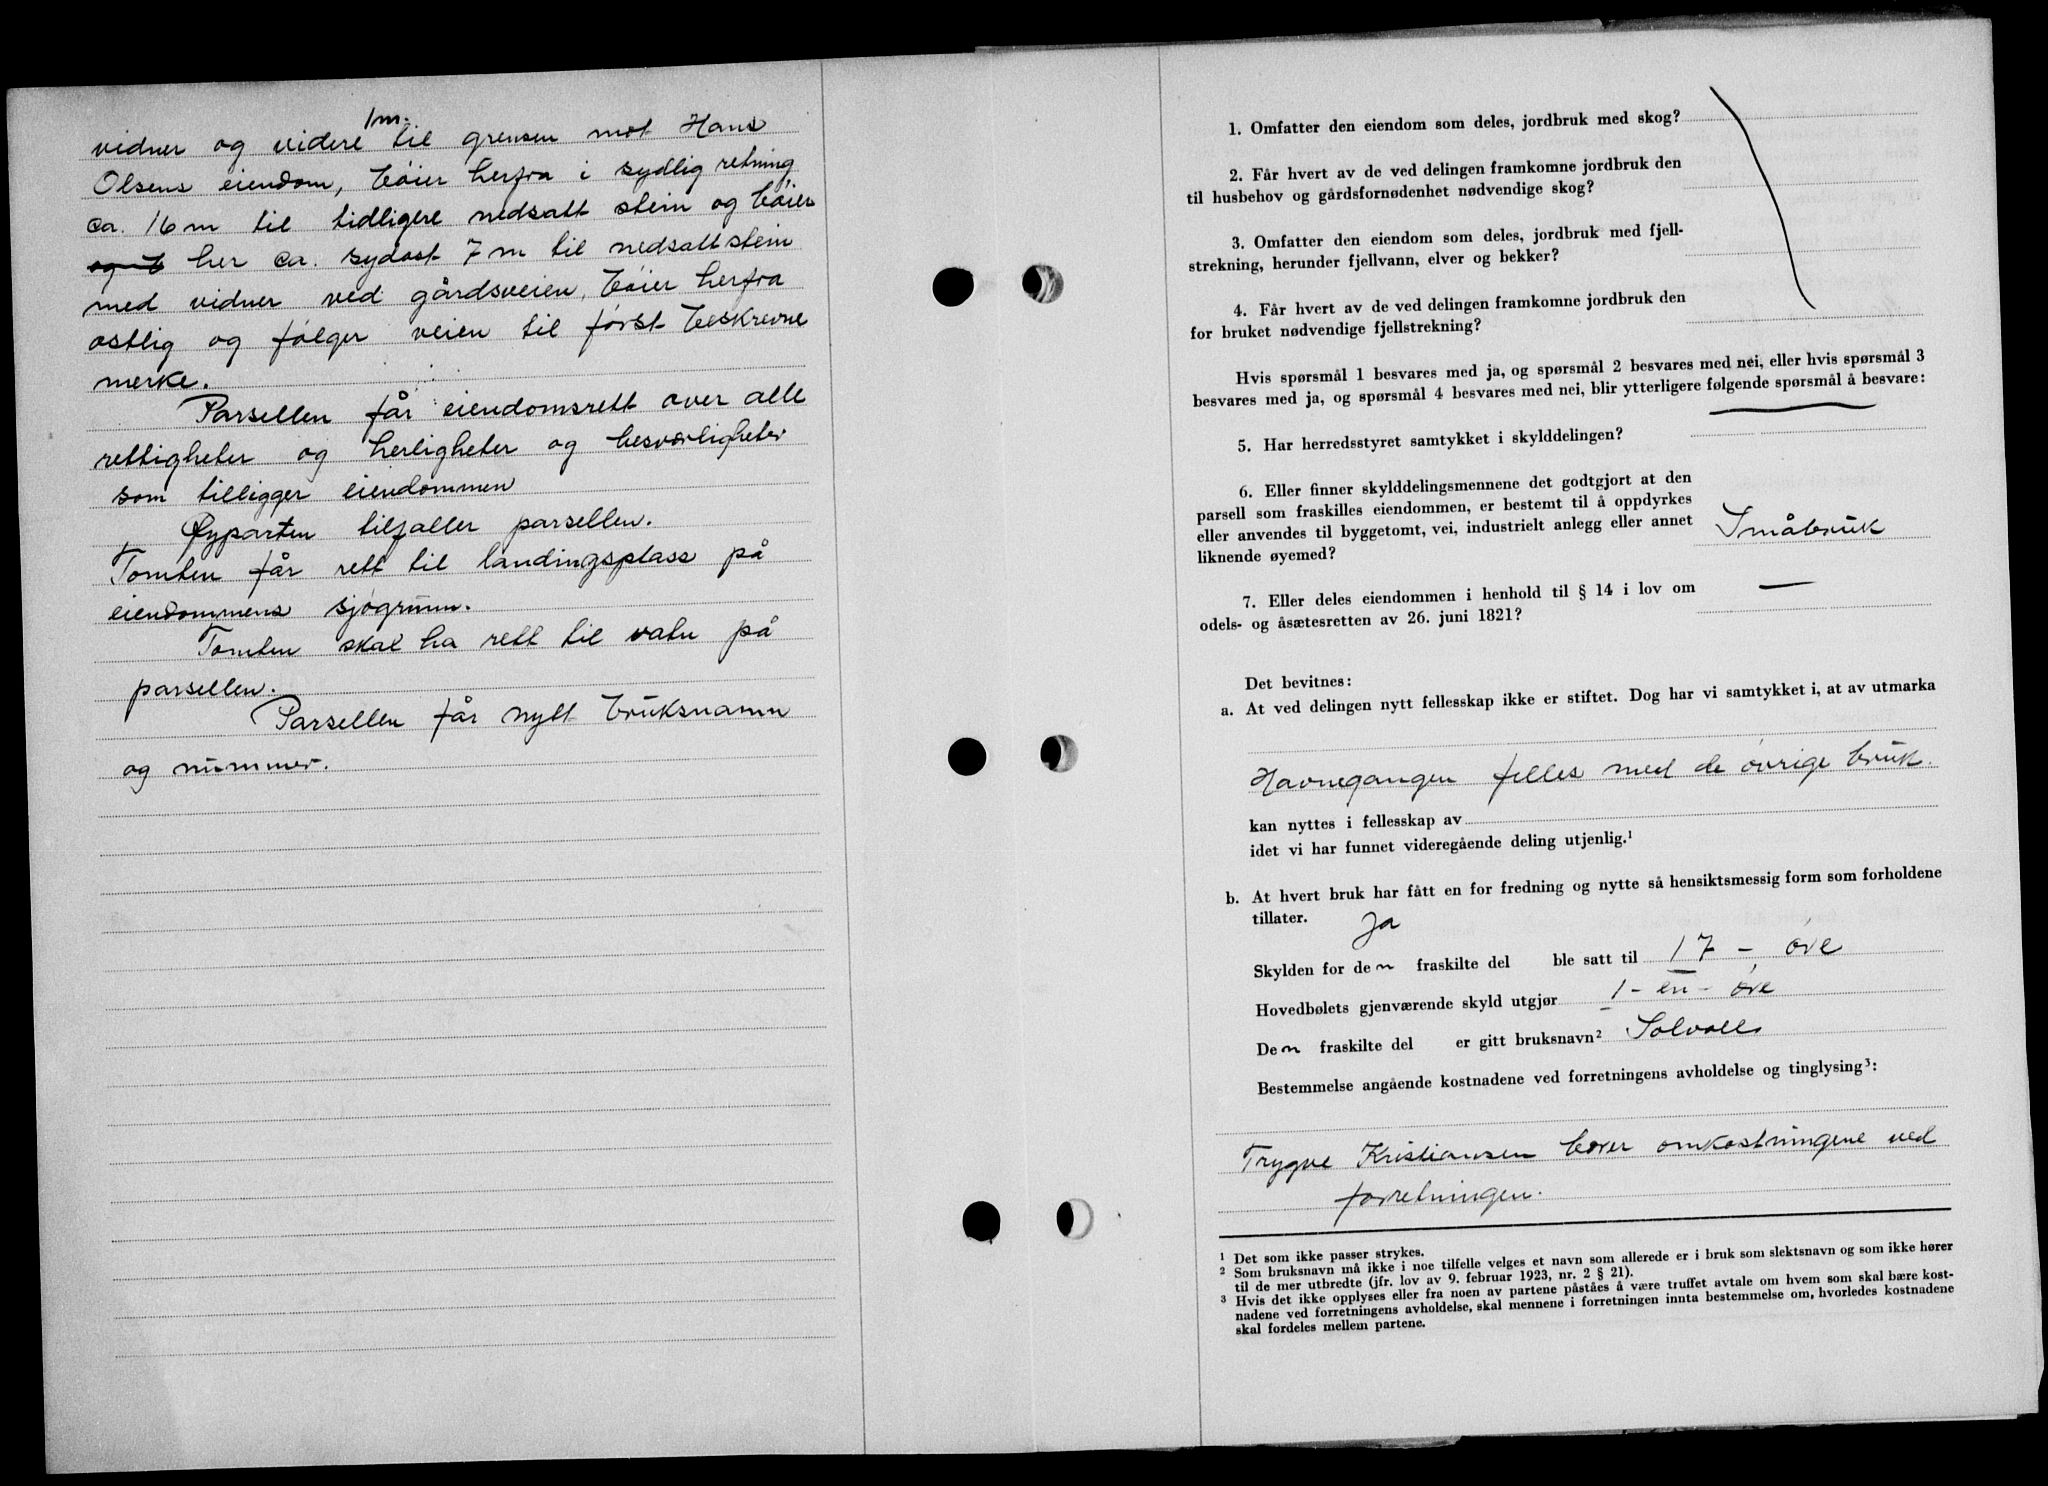 vidner og videre 1 m. til grensen mot Hans
Olsens eiendom, bøier herfra i sydlig retning
ca. 16 m til tidligere nedsatt stein og bøier
her ca. sydost 7 m til nedsatt stein
med vidner ved gårdsveien, bøier herfra
østlig og følger veien til først beskrevne
merke.
Parsellen får eiendomsrett over alle
rettigheter og herligheter og besværligheter
som tilligger eiendommen
Øyparten tilfaller parsellen.
Tomten får rett til landingsplass på
eiendommens sjøgrunn.
Tomten skal ha rett til vatn på
parsellen.
Parsellen får nytt bruksnamn
og nummer.
1. Omfatter den eiendom som deles, jordbruk med skog?
2. Får hvert av de ved delingen framkomne jordbruk den
til husbehov og gårdsfornødenhet nødvendige skog?
3. Omfatter den eiendom som deles, jordbruk med fjell-
strekning, herunder fjellvann, elver og bekker?
4. Får hvert av de ved delingen framkomne jordbruk den
for bruket nødvendige fjellstrekning?
Hvis spørsmål 1 besvares med ja, og spørsmål 2 besvares med nei, eller hvis spørsmål 3
besvares med ja, og spørsmål 4 besvares med nei, blir ytterligere følgende spørsmål å besvare:
5. Har herredsstyret samtykket i skylddelingen?
6. Eller finner skylddelingsmennene det godtgjort at den
parsell som fraskilles eiendommen, er bestemt til å oppdyrkes
eller anvendes til byggetomt, vei, industrielt anlegg eller annet
liknende øyemed?
Småbruk
7. Eller deles eiendommen i henhold til § 14 i lov om
odels- og åsætesretten av 26. juni 1821?
—
Det bevitnes:
a. At ved delingen nytt fellesskap ikke er stiftet. Dog har vi samtykket i, at av utmarka
Havnegangen felles med de øvrige bruk.
kan nyttes i fellesskap av
idet vi har funnet videregående deling utjenlig.¹
b. At hvert bruk har fått en for fredning og nytte så hensiktsmessig form som forholdene
tillater. Ja
Skylden for den fraskilte del ble satt til 17 - øre
Hovedbølets gjenværende skyld utgjør 1 - en - øre
Den fraskilte del er gitt bruksnavn² Solvoll
Bestemmelse angående kostnadene ved forretningens avholdelse og tinglysing³:
Trygve Kristiansen bærer omkostningene ved
forretningen.
¹ Det som ikke passer strykes.
² Som bruksnavn må ikke i noe tilfelle velges et navn som allerede er i bruk som slektsnavn og som ikke hører
til de mer utbredte (jfr. lov av 9. februar 1923, nr. 2 § 21).
³ Hvis det ikke opplyses eller fra noen av partene påståes å være truffet avtale om hvem som skal bære kost-
nadene ved forretningens avholdelse, skal mennene i forretningen innta bestemmelse om, hvorledes kostnadene
skal fordeles mellem partene.